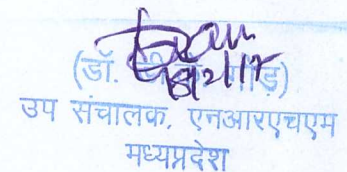 (डॉ. गौड़)
उप संचालक, एनआरएचएम
मध्यप्रदेश